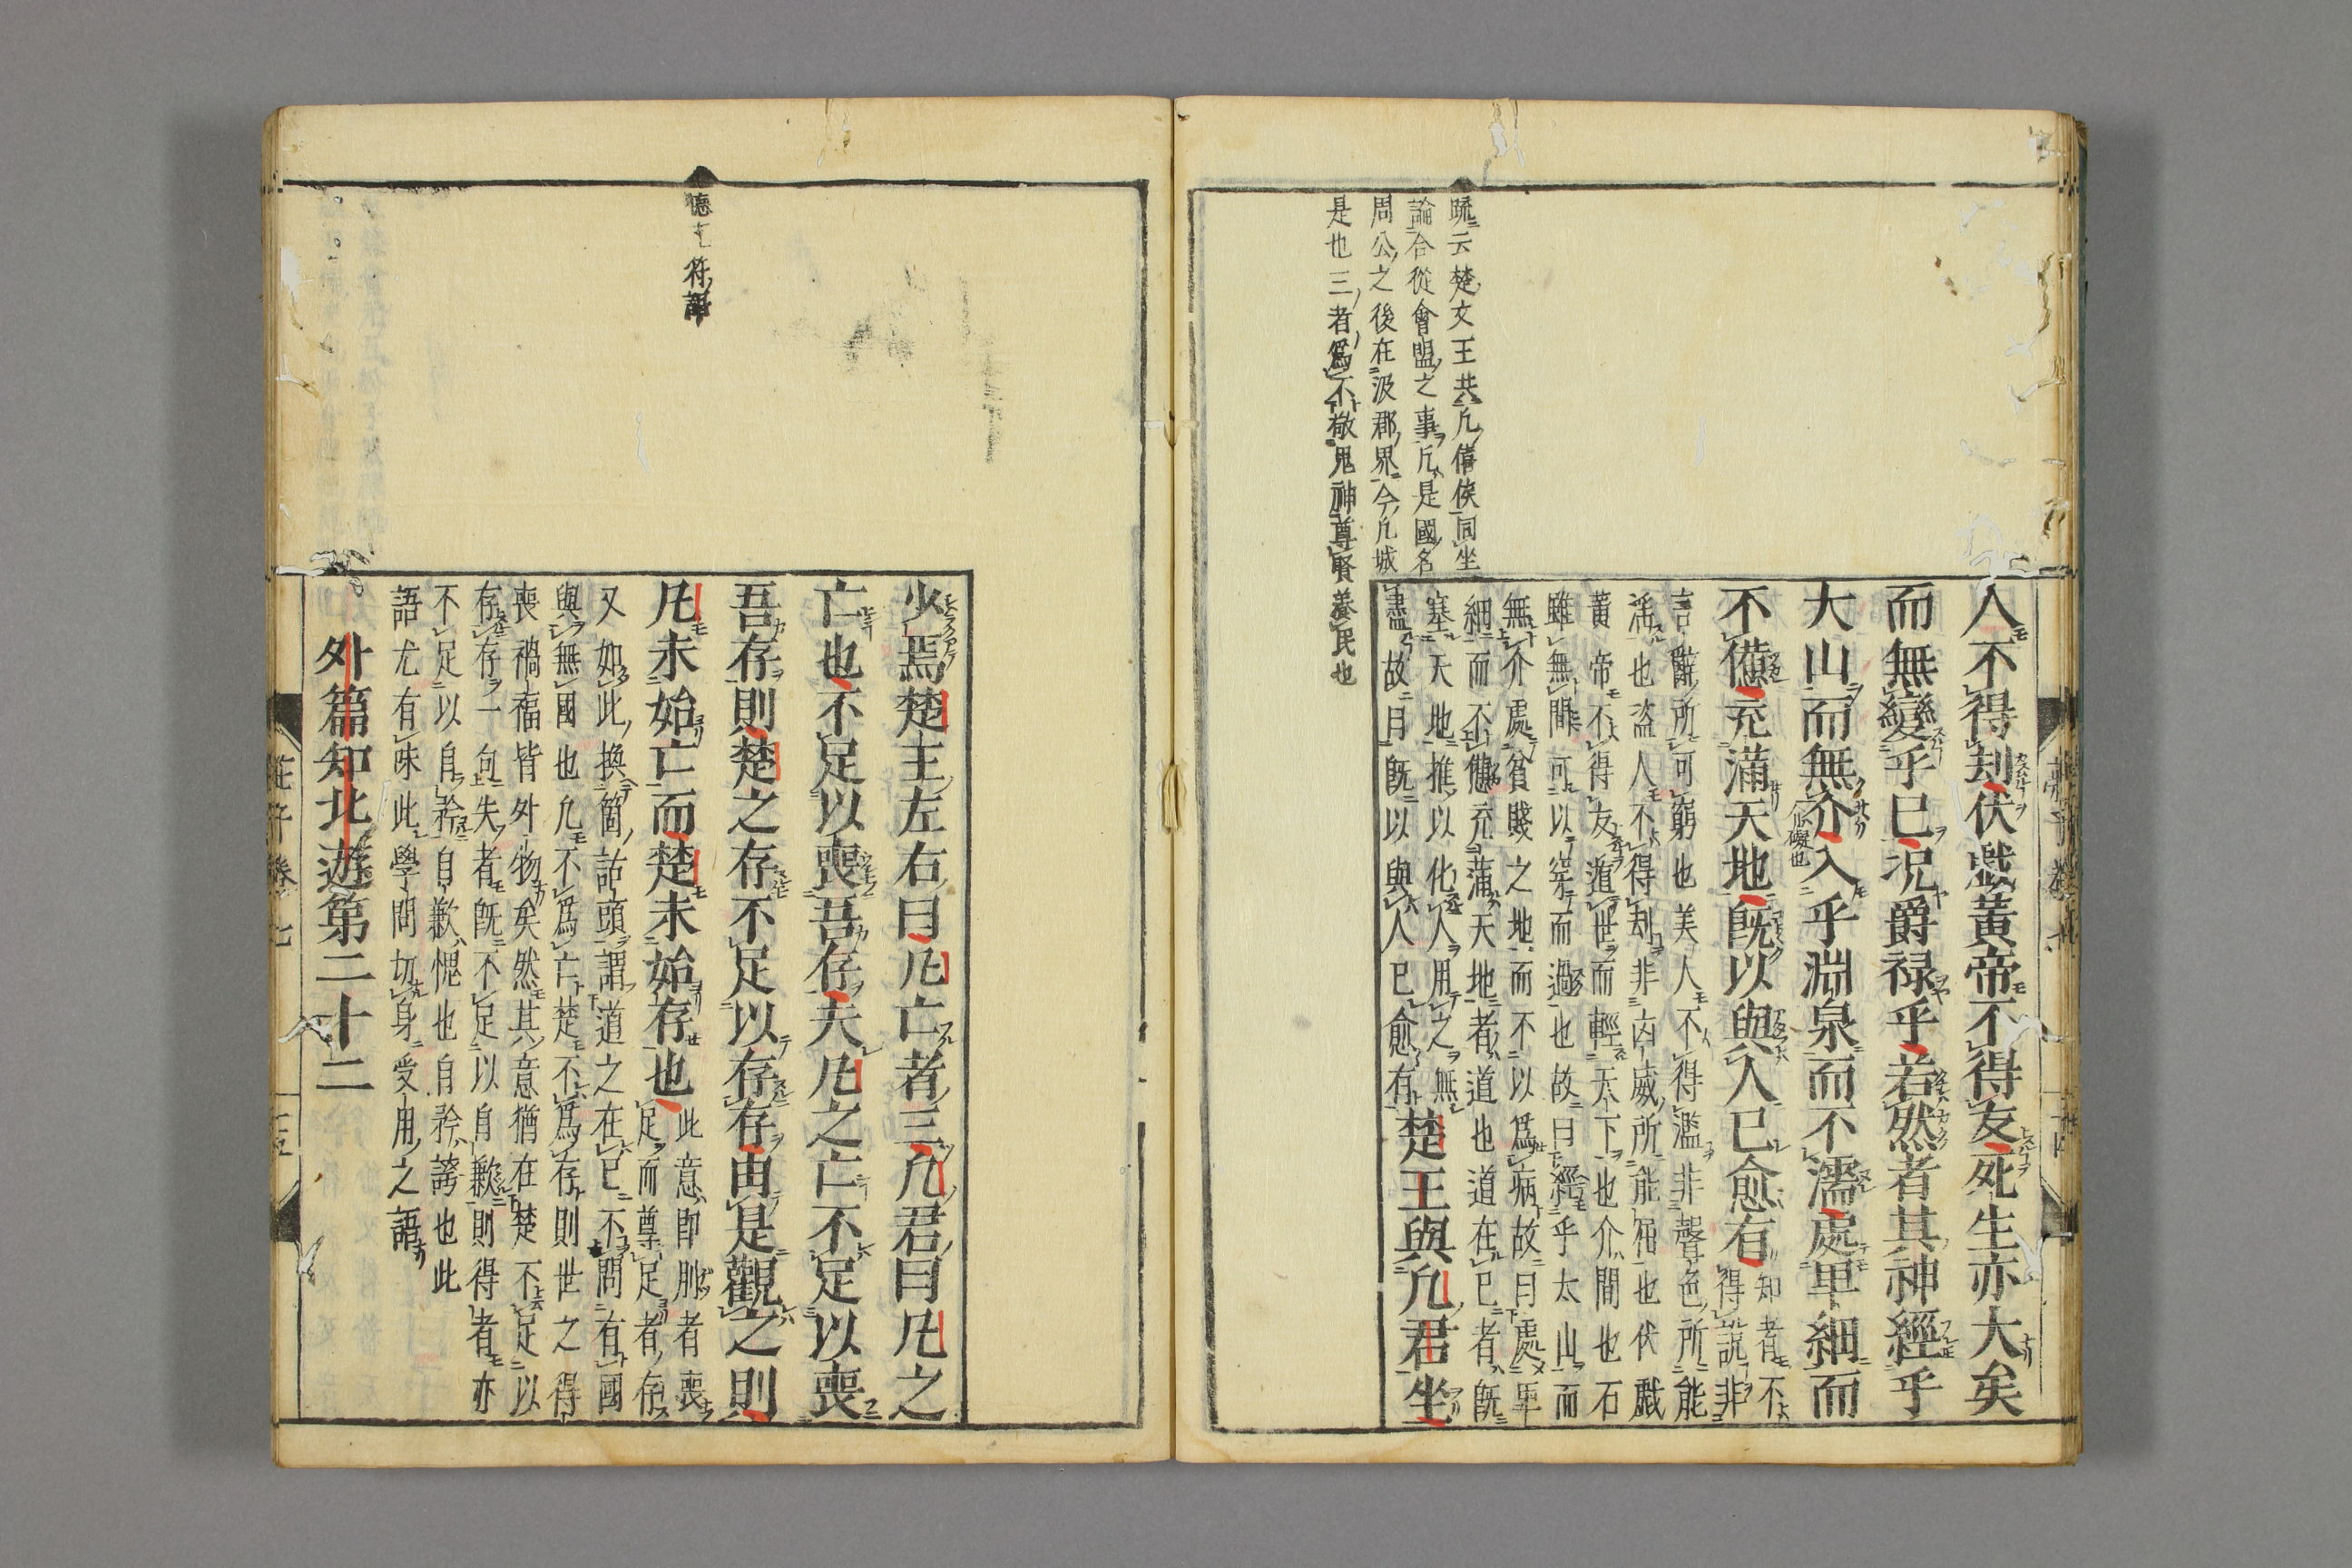 疏云楚文王共凡僖侯同坐
論合從會盟之事凡是國名
周公之後在汲郡界今凡城
是也三者爲不敬鬼神尊賢養民也
人不得刼伏戲黄帝不得友死生亦大矣
而無變乎已况爵禄乎若然者其神經乎
大山而無介入乎淵泉而不濡處卑細而
介礙也
不備充滿天地既以與人已愈有
知者不
得説非
言辭所可窮也美人不得濫非聲色所能
淫也盗人不得刼非凶威所能窘也伏戲
黄帝不得友道世而輕天下也介間也石
雖無間可以穿而過也故曰經乎太山而
無介處貧賤之地而不以爲病故曰處卑
細而不憊充滿天地者道也道在已者既
塞天地推以化人用之無
盡故曰既以與人已愈有
楚王與凡君坐
德充符
少焉楚王左右曰凡亡者三凡君曰凡之
亡也不足以喪吾存夫凡之亡不足以喪
吾存則楚之存不足以存存由是觀之則
凡未始亡而楚未始存也
此意即兀者喪
足而尊足者存
又如此換箇話頭謂道之在已不問有國
與無國也凡不爲亡楚不爲存則世之得
喪禍福皆外物矣然其意猶在楚不足以
存存一句上失者既不足以自歉則得者亦
不足以自矜自歉愧也自矜誇也此
語尤有味此學問切身受用之語
外篇知北遊第二十二
莊子卷七